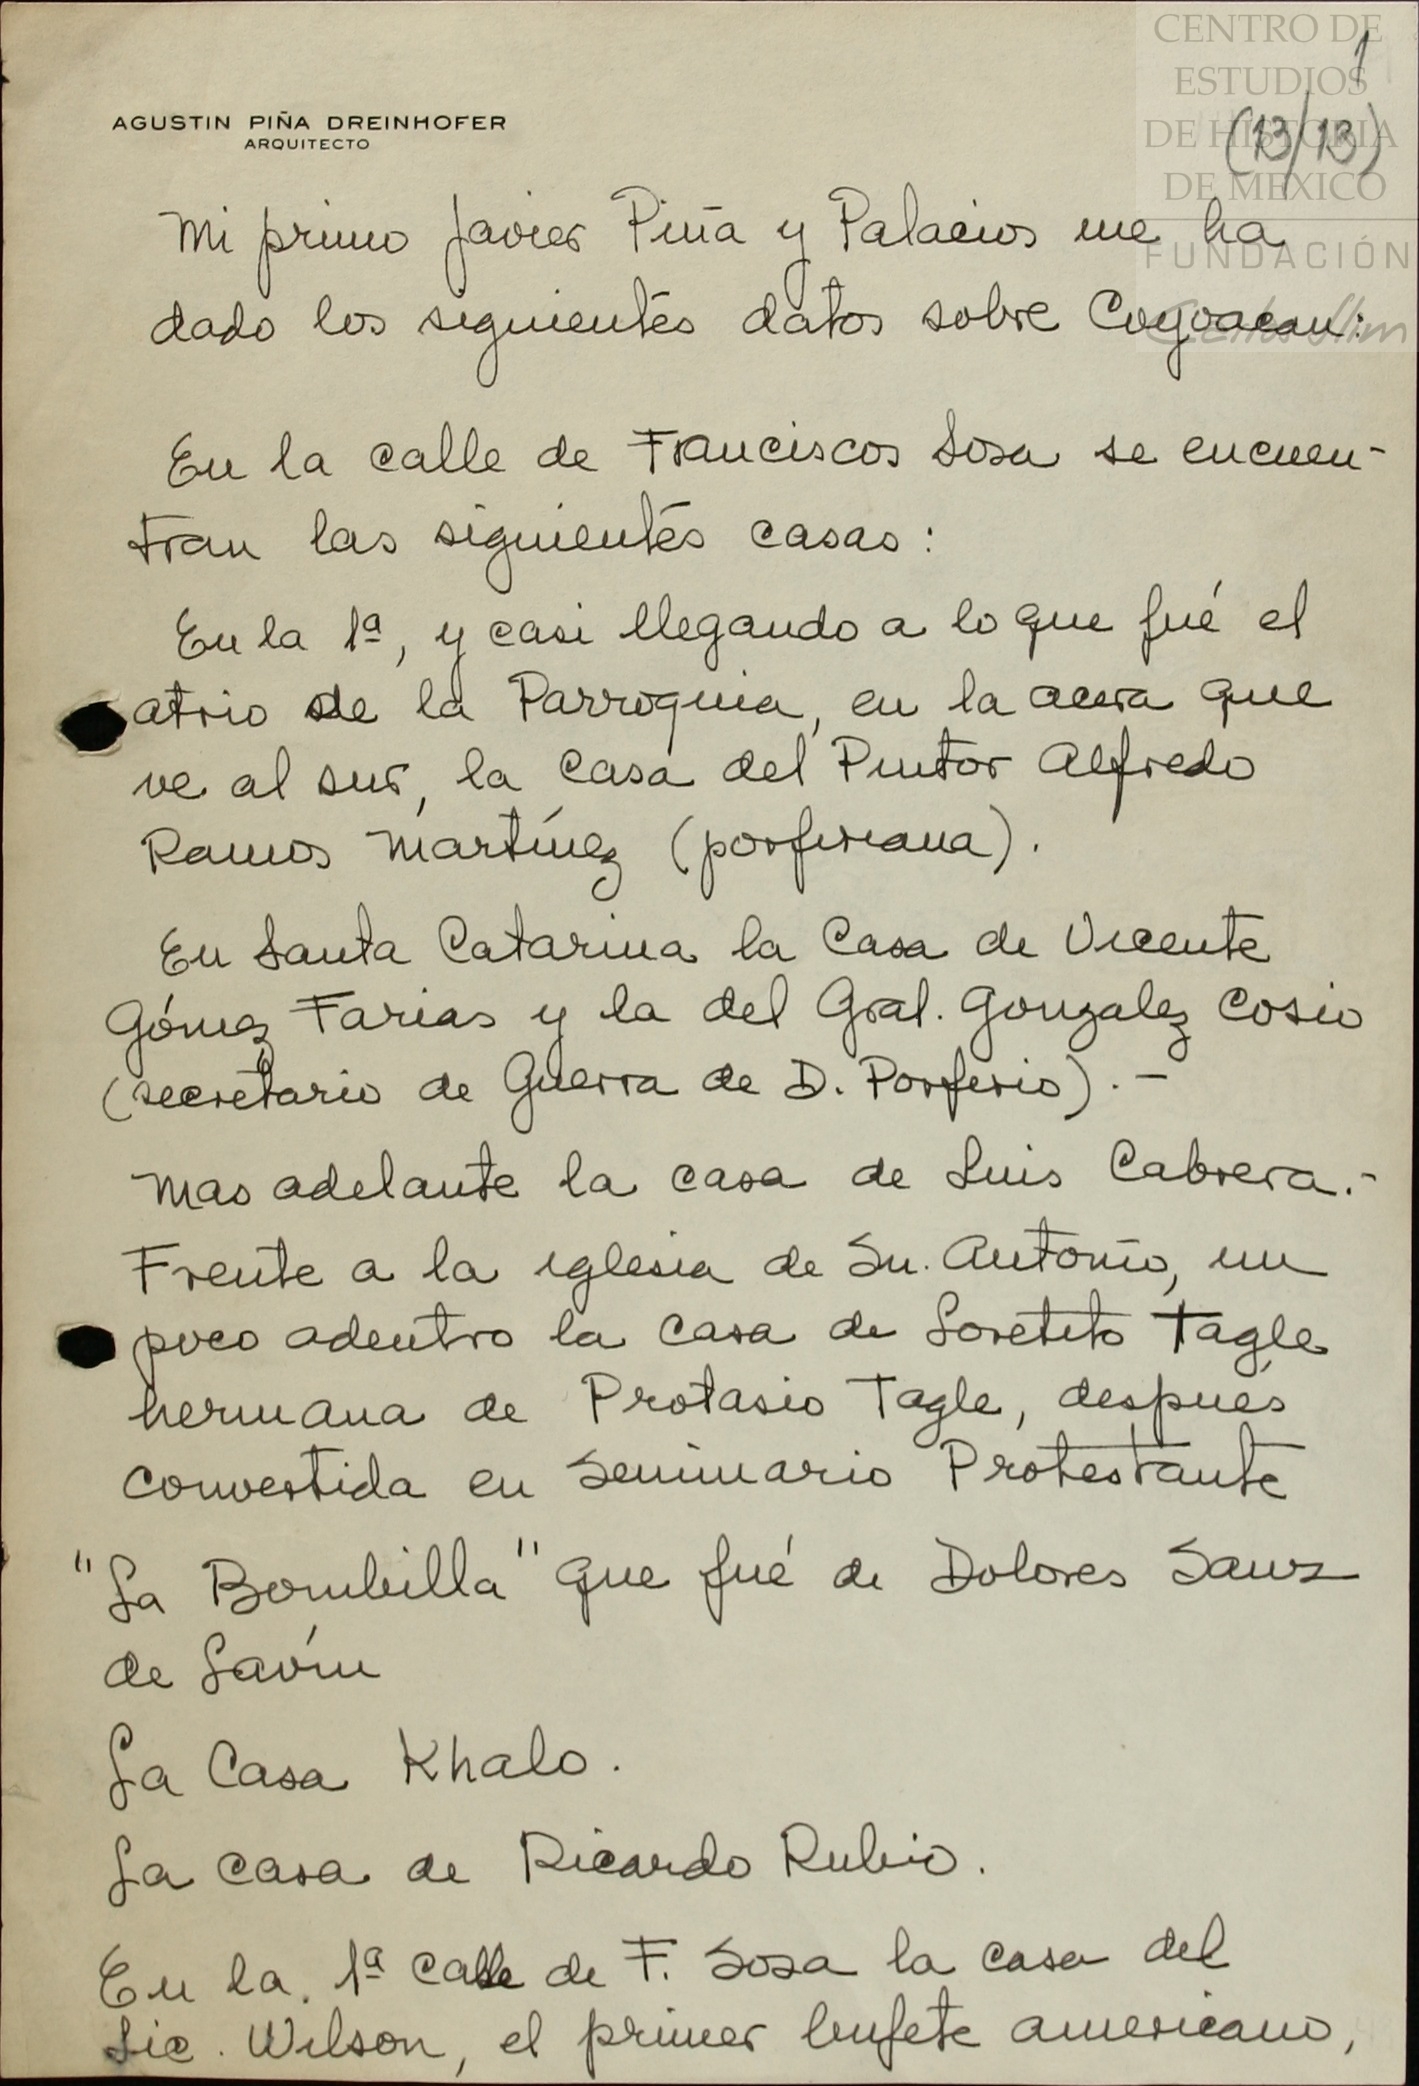 CENTRO DE
ESTUDIOS
DE HISTORIA
DE MEXICO
FUNDACIÓN
Carlos Slim
1
(13/13)
AGUSTIN PIÑA DREINHOFER
ARQUITECTO
Mi primo Javier Piña y Palacios me ha
dado los siguientes datos sobre Coyoacan:
En la calle de Franciscos Sosa se encuen-
tran las siguientes casas:
En la 1ª, y casi llegando a lo que fué el
atrio de la Parroquia, en la acera que
ve al sur, la casa del Pintor Alfredo
Ramos Martínez (porfiriana).
En Santa Catarina la Casa de Vicente
Gómez Farias y la del Gral. Gonzalez Cosio
(secretario de Guerra de D. Porfirio).-
Mas adelante la casa de Luis Cabrera.-
Frente a la iglesia de Sn. Antonio, un
poco adentro la casa de Loretito Tagle
hermana de Protasio Tagle, después
convertida en Seminario Protestante
"La Bombilla" que fué de Dolores Sanz
de Lavín
La Casa Khalo.
La casa de Ricardo Rubio.
En la. 1ª calle de F. Sosa la casa del
Lic. Wilson, el primer bufete americano,